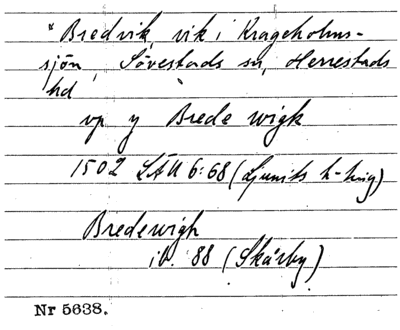 "Bredvik, vik i Krageholms-
sjön, Sövestads sn, Herrestads
hd
vp y Brede wigk
1502 LÄU 6:68 (Ljunits h-)
Bredewigh
ib. 88 (Skårby)
Nr 5638.